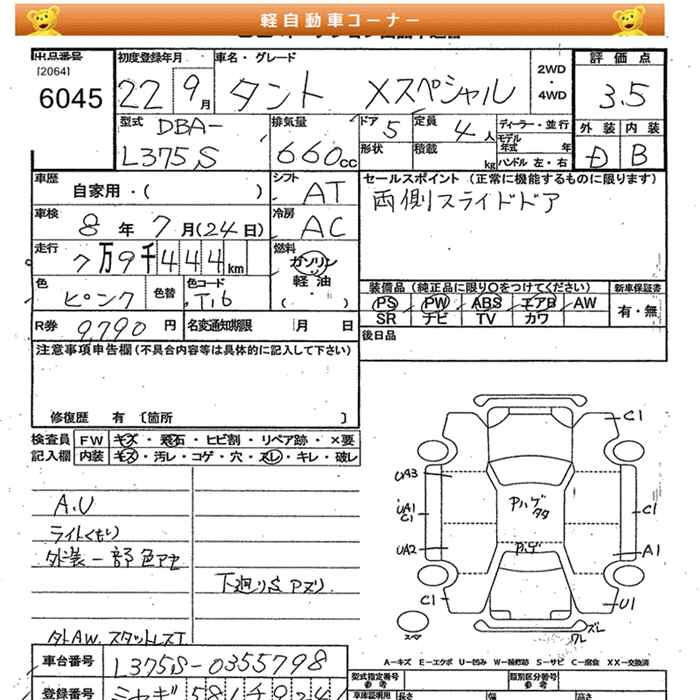 軽自動車コーナー
出品番号 初度登録年月 車名・グレード 2WD・4WD 評価点
[2064]
6045 22 9月 タント Xスペシャル 3.5
型式 DBA-L375S 排気量 660cc ドア 5 定員 4人 ディーラー・並行 外装 内装
形状 積載 kg モデル年式 年 ハンドル 左・右 D B
車歴 自家用・( ) シフト AT セールスポイント (正常に機能するものに限ります)
車検 8年7月(24日) 冷房 AC 両側スライドドア
走行 7万9千444km 燃料 ガソリン・軽油・( )
色 ピンク 色替 色コード T16 装備品 (純正品に限り○をつけてください) 新車保証書
PS PW ABS エアB AW 有・無
SR ナビ TV カワ
R券 9,790円 名変通知期限 月 日 後日品
注意事項申告欄 (不具合内容等は具体的に記入して下さい)
修復歴 有 〔箇所 〕
検査員 FW キズ・飛石・ヒビ割・リペア跡・×要
記入欄 内装 キズ・汚レ・コゲ・穴・スレ・キレ・破レ
A.U
ライトくもり
外装一部色アセ
下廻りS Pズリ
外AW.スタットレスT
C1
UA3
UA1
C1
C1
Pハゲ
タタ
UA2
Pハゲ
A1
C1
U1
スペ
ズレ
ワレ
A-キズ E-エクボ U-凹み W-補修跡 S-サビ C-腐食 XX-交換済
車台番号 L375S-0355798
型式指定番号 類別区分番号
登録番号
車庫証明用 長さ 幅 高さ